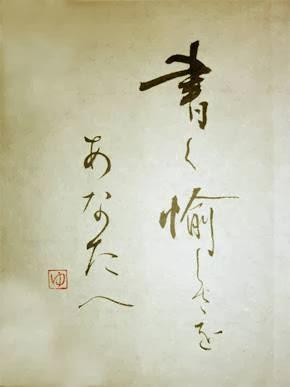 書く愉しさを
あなたへ
ゆ